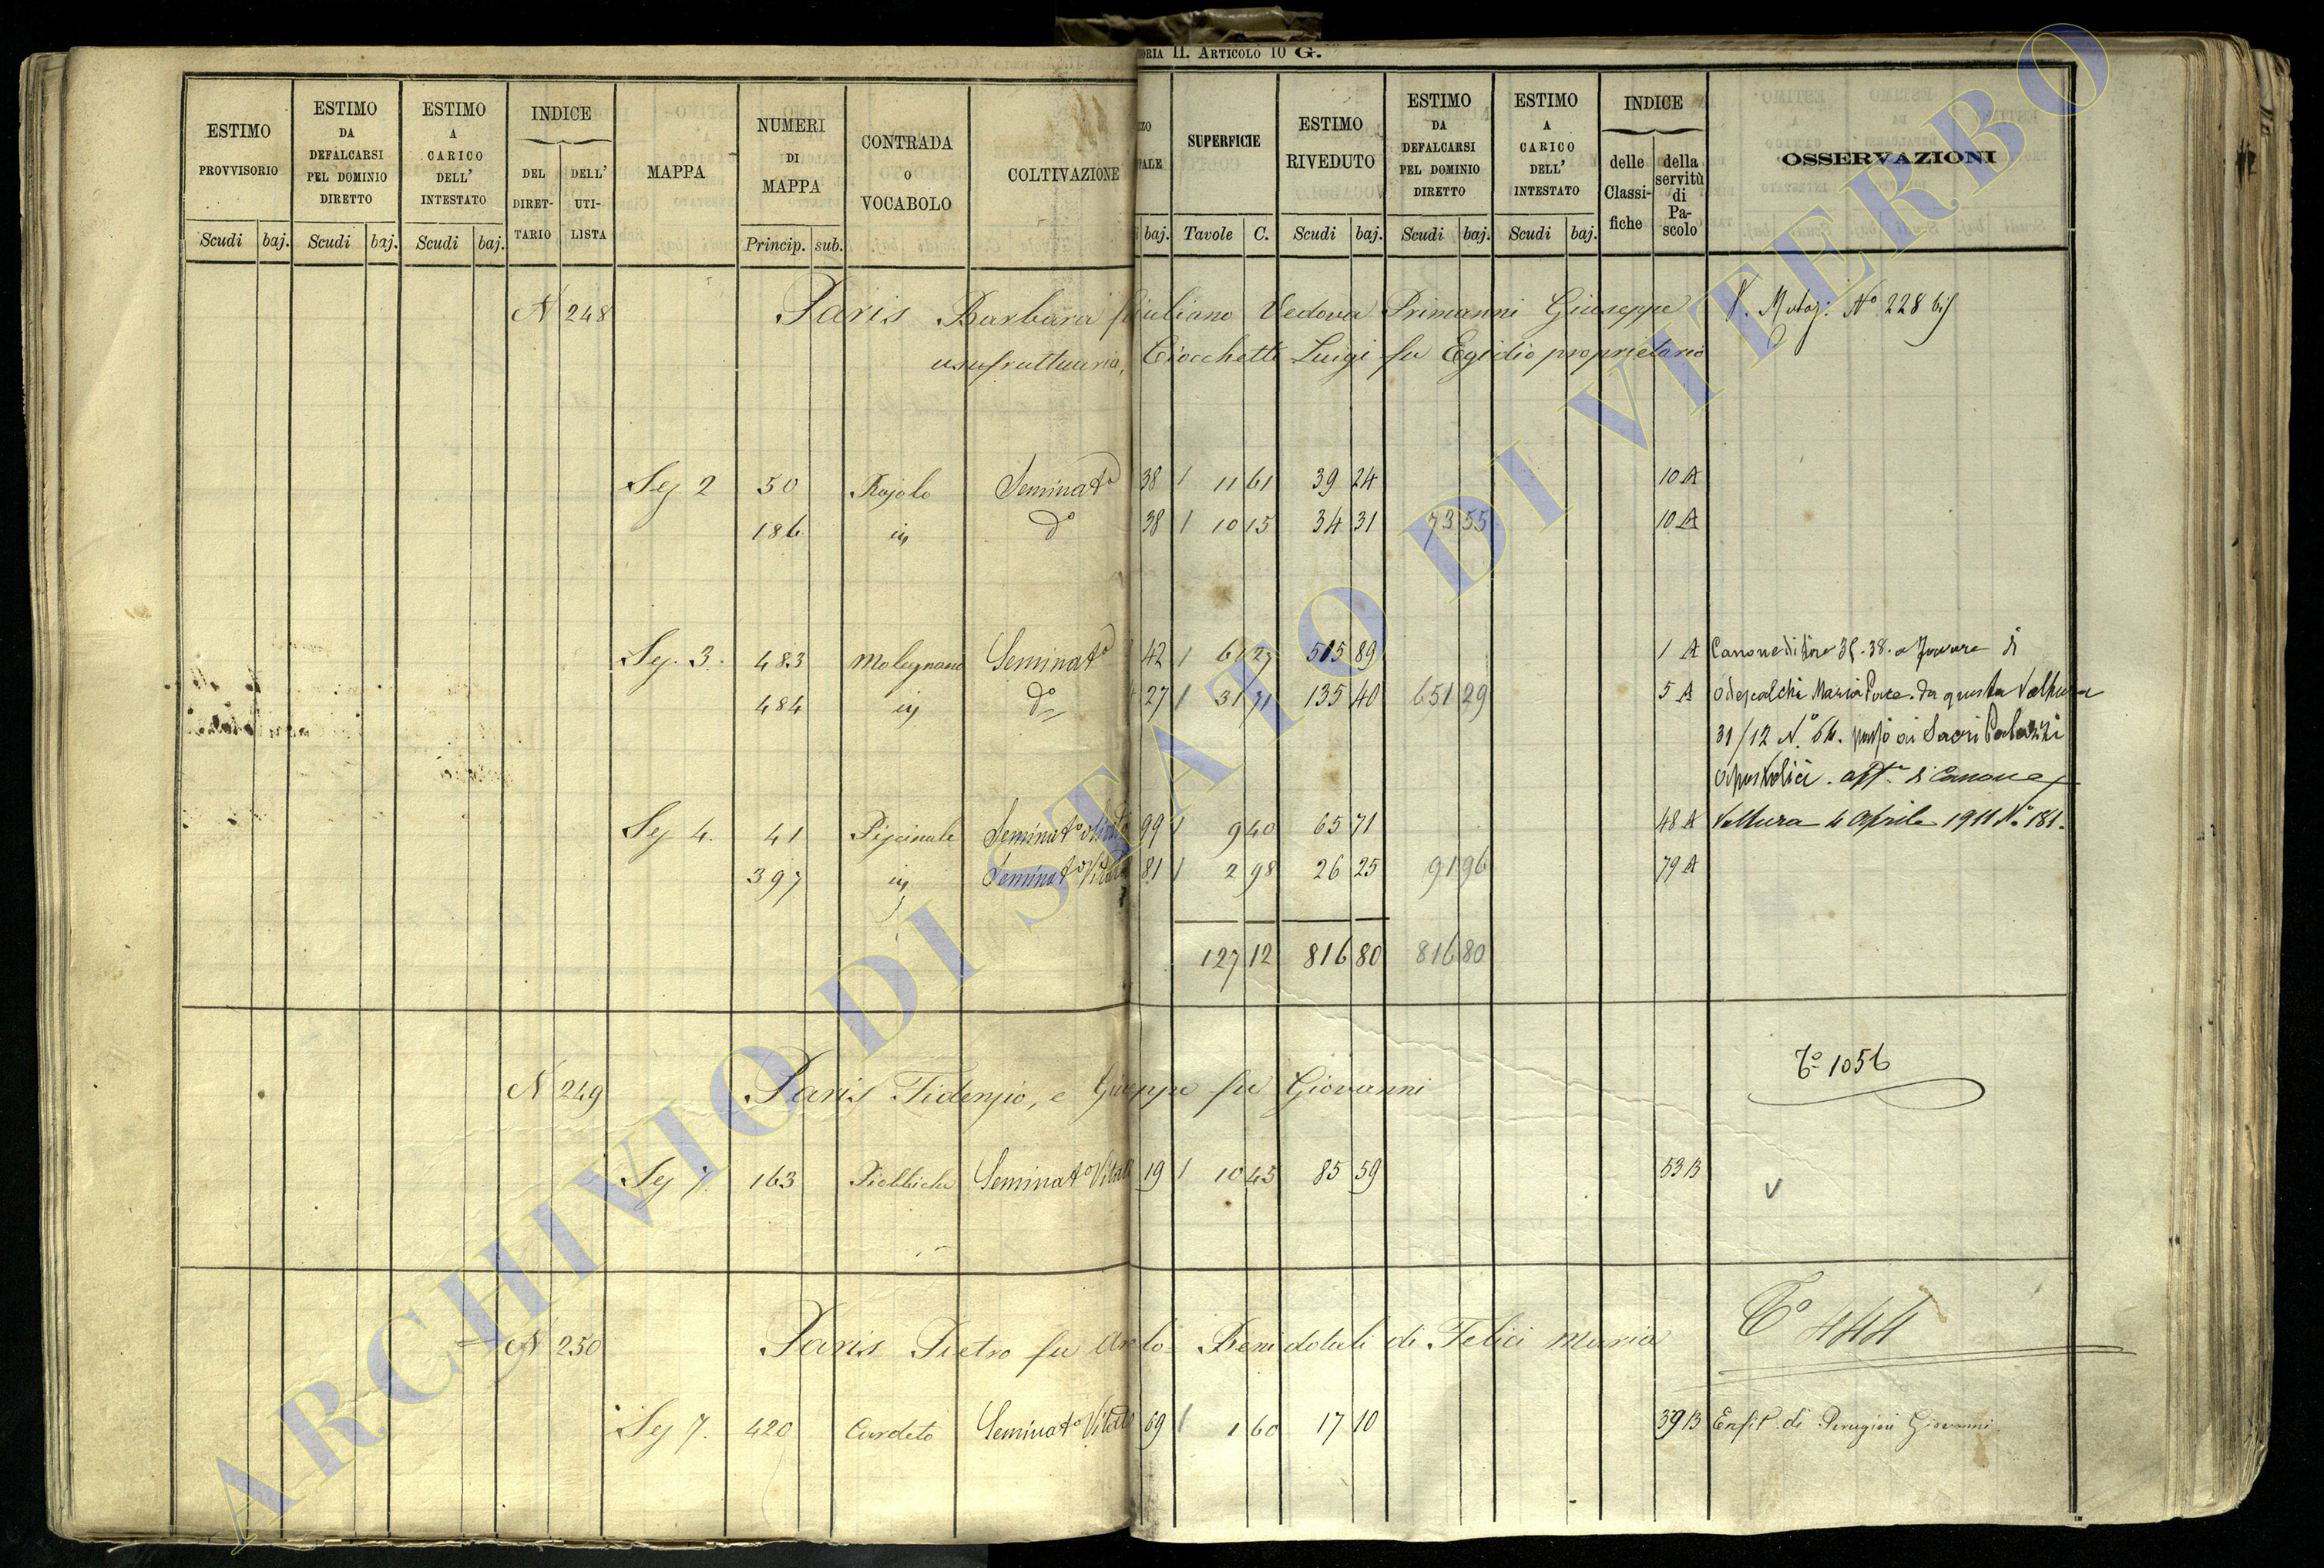 ORIA II. ARTICOLO 10 G.
ESTIMO PROVVISORIO Scudi baj.
ESTIMO DA DEFALCARSI PEL DOMINIO DIRETTO Scudi baj.
ESTIMO A CARICO DELL' INTESTATO Scudi baj.
INDICE DEL DIRET-TARIO DELL' UTI-LISTA
MAPPA
NUMERI DI MAPPA Princip. sub.
CONTRADA O VOCABOLO
COLTIVAZIONE
baj.
SUPERFICIE Tavole C.
ESTIMO RIVEDUTO Scudi baj.
ESTIMO DA DEFALCARSI PEL DOMINIO DIRETTO Scudi baj.
ESTIMO A CARICO DELL' INTESTATO Scudi baj.
INDICE delle Classi-fiche della servitù di Pa-scolo
OSSERVAZIONI
N 248 Paris Barbara fu Giuliano Vedova Primanni Giuseppe V. Mutaz: N° 228 bis
usufruttuaria, Ciocchetti Luigi fu Egidio proprietario
Sez 2 50 Rojolo Seminat° 38 / 11 61 39 24 10 A
186 iv d° 38 / 10 15 34 31 73 55 10 A
Sez. 3. 483 Molegnano Seminat° 42 / 61 27 515 89 1 A Canone di lire 35.38. a favore di
484 iv d° 27 / 31 71 135 40 651 29 5 A Odescalchi Maria Pace. da questa Voltura
31/12 N° 64. passò ai Sacri Palazzi
Apostolici. aff.ne di Canone
Sez 4. 41 Piscinale Seminat° olivato 99 / 9 40 65 71 48 A Voltura 4 Aprile 1911 N° 181.
397 iv Seminat° Vitato 81 / 2 98 26 25 91 96 79 A
127 12 816 80 816 80
T° 1056
N 249 Paris Fidenzio, e Giuseppe fu Giovanni
Sez 7. 163 Seminat° Vitato 19 / 10 45 85 59 53 B
V
T° 444
N 250 Paris Pietro fu Beni dotali di Felici Maria
Sez 7. 420 Cardeto Seminat° Vitato 69 / 1 60 17 10 39 B Enfit. di Perugini Giovanni
ARCHIVIO DI STATO DI VITERBO